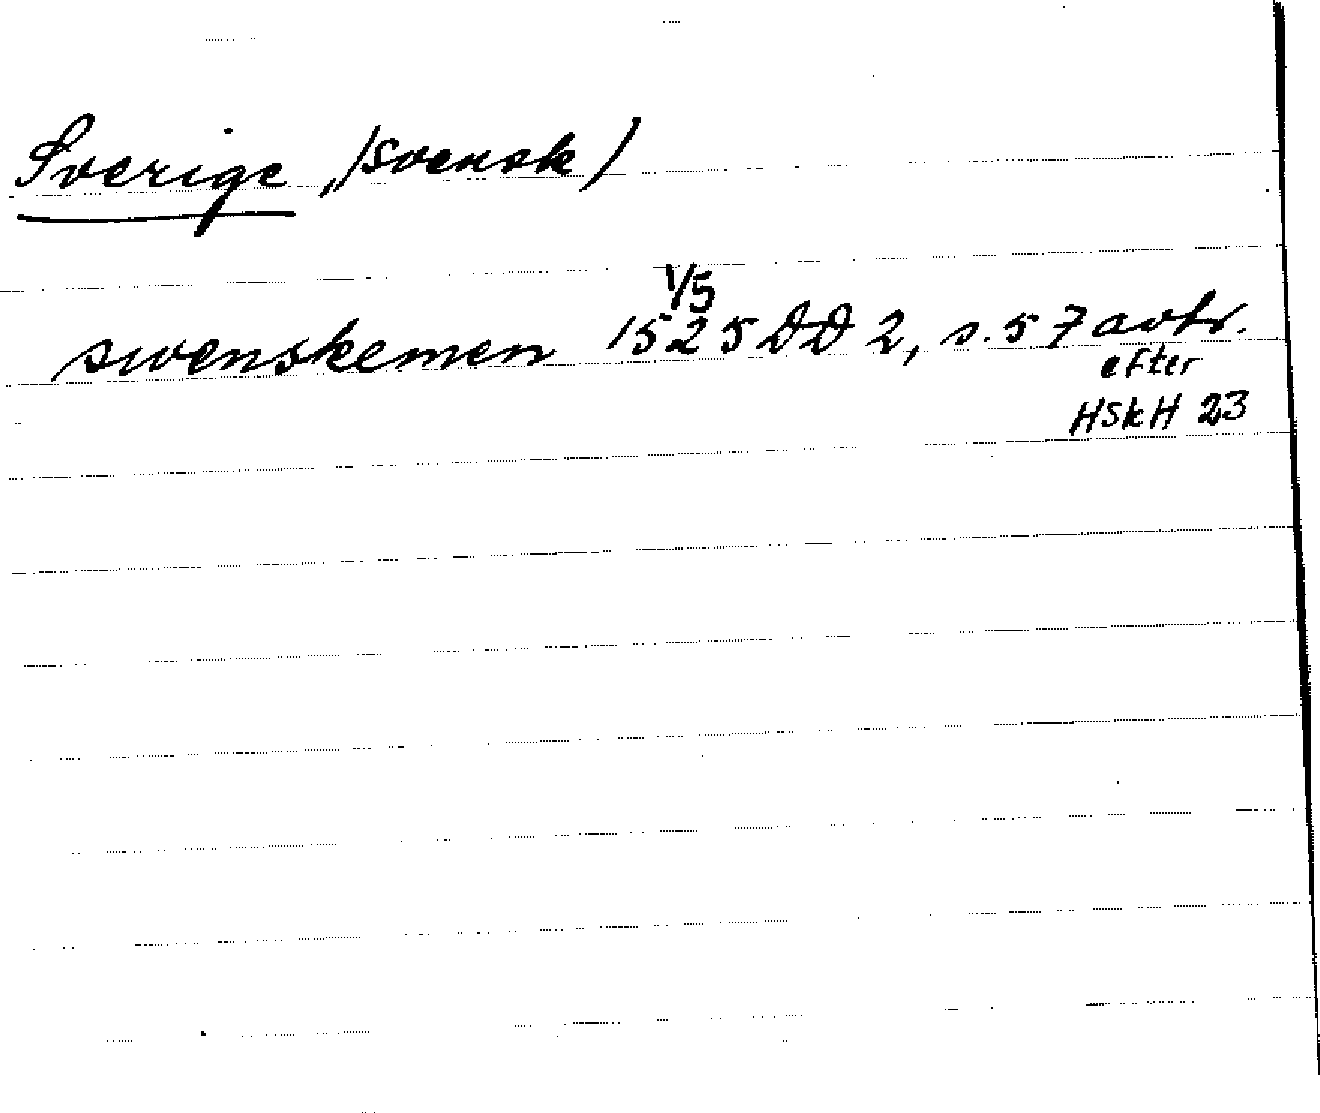 Sverige, /svensk/
swenskemen 1525 1/5 DD 2, s. 57 avtr.
efter
HSkH 23